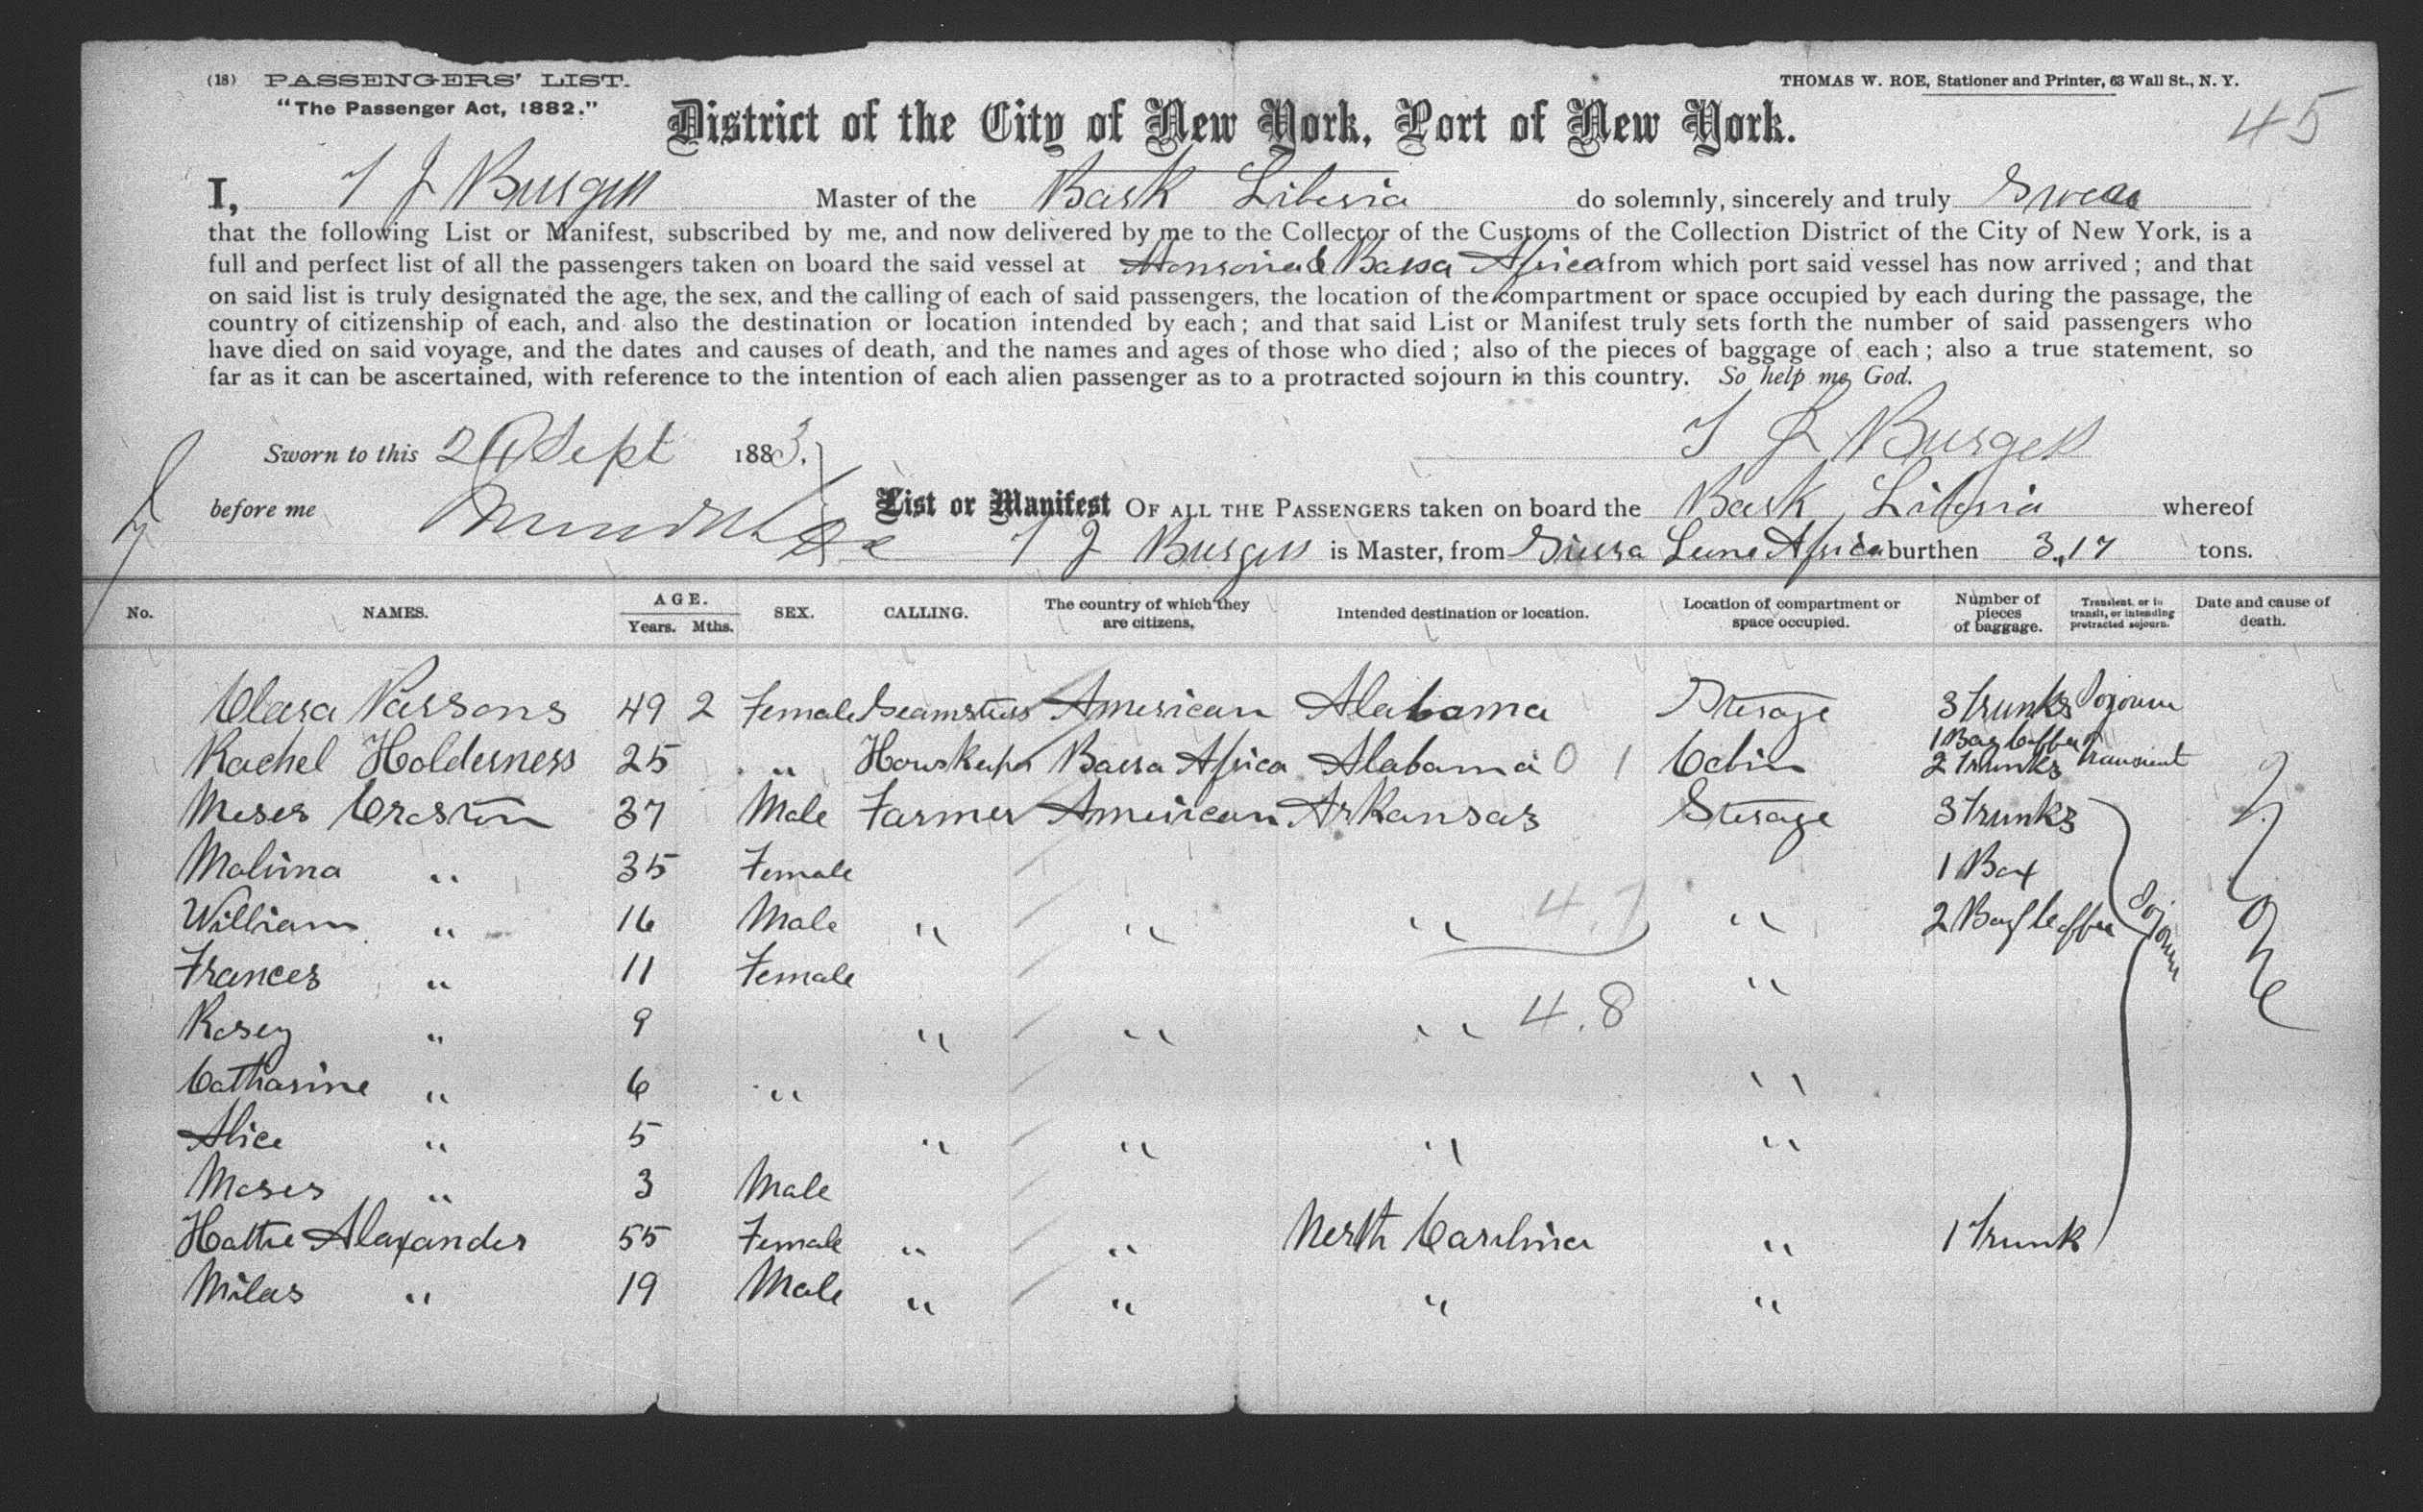 (18) PASSENGERS' LIST.
THOMAS W. ROE, Stationer and Printer, 63 Wall St., N. Y.
"The Passenger Act, 1882."
45
District of the City of New York, Port of New York.
I, T J Burgess Master of the Bark Liberia do solemnly, sincerely and truly Swear
that the following List or Manifest, subscribed by me, and now delivered by me to the Collector of the Customs of the Collection District of the City of New York, is a
full and perfect list of all the passengers taken on board the said vessel at Bassa Africa from which port said vessel has now arrived; and that
on said list is truly designated the age, the sex, and the calling of each of said passengers, the location of the compartment or space occupied by each during the passage, the
country of citizenship of each, and also the destination or location intended by each; and that said List or Manifest truly sets forth the number of said passengers who
have died on said voyage, and the dates and causes of death, and the names and ages of those who died; also of the pieces of baggage of each; also a true statement, so
far as it can be ascertained, with reference to the intention of each alien passenger as to a protracted sojourn in this country. So help me God.
Sworn to this Sept 1883.
T J Burgess
before me
List or Manifest OF ALL THE PASSENGERS taken on board the Bark Liberia whereof
T J Burgess is Master, from Sierra Leone Africa burthen 317 tons.
No. NAMES. AGE. Years. Mths. SEX. CALLING. The country of which they are citizens. Intended destination or location. Location of compartment or space occupied. Number of pieces of baggage. Transient, or in transit, or intending protracted sojourn. Date and cause of death.
Clara Parsons 49 2 Female Seamstress American Alabama Sterage 3 Trunks Sojourn
Rachel Holderness 25 " Houskeeper Bassa Africa Alabama 0 1 Cabin 1 Bag Coffee 2 Trunks Transient
Moses Craston 37 Male Farmer American Arkansas Sterage 3 Trunks
Malinna " 35 Female 1 Box
William " 16 Male " " " 4.7 " 2 Bag Coffee Sojourn
Frances " 11 Female "
Rosey " 9 " " " 4.8
Catharine " 6 " "
Alice " 5 " " " "
Moses " 3 Male
Hattie Alaxander 55 Female " " North Carolina " 1 Trunk
Milas " 19 Male " " " "
None